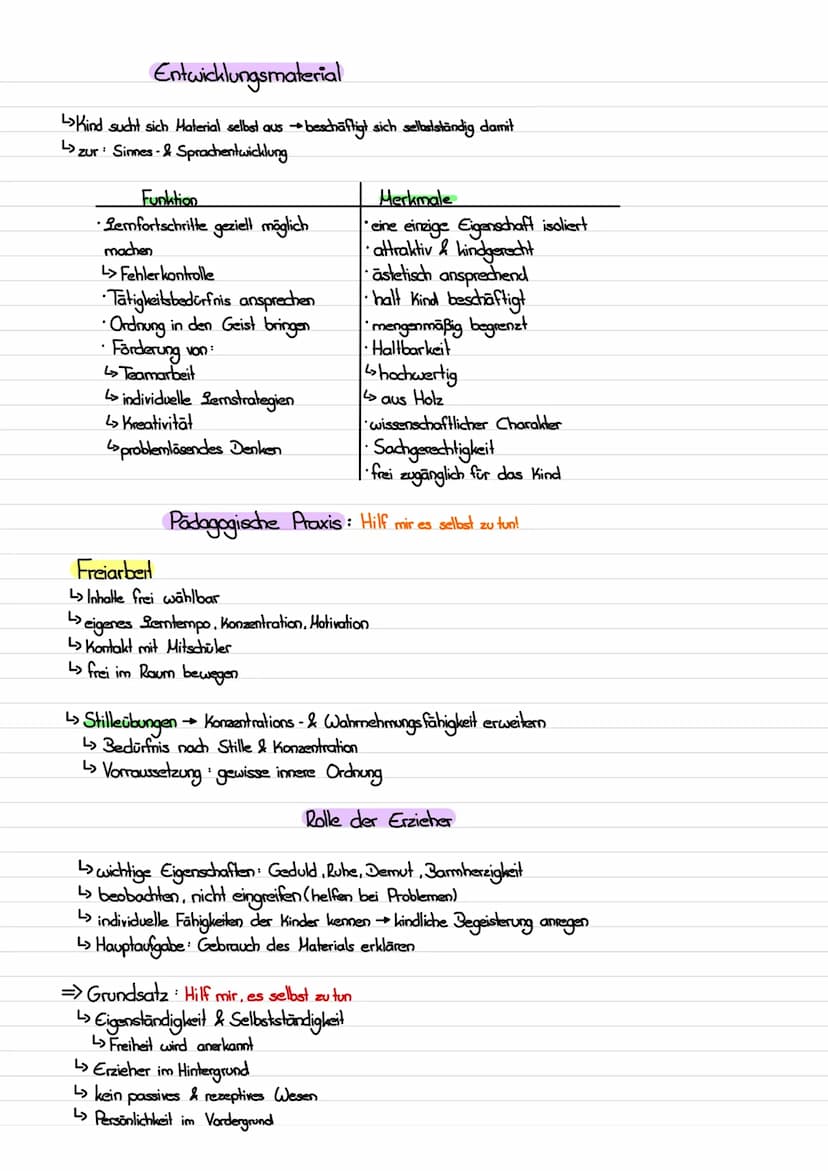 Entwicklungsmaterial
↳ Kind sucht sich Material selbst aus → beschäftigt sich selbstständig damit
↳ zur : Sinnes- & Sprachentwicklung
Funktion
· Lernfortschritte geziell möglich
machen
↳ Fehlerkontrolle
· Tätigkeitsbedürfnis ansprechen
· Ordnung in den Geist bringen
· Förderung von:
↳ Teamarbeit
↳ individuelle Lernstrategien
↳ Kreativität
↳ problemlösendes Denken
Merkmale
· eine einzige Eigenschaft isoliert
· attraktiv & kindgerecht
· ästetisch ansprechend
· hält Kind beschäftigt
· mengenmäßig begrenzt
· Haltbarkeit
↳ hochwertig
↳ aus Holz
· wissenschaftlicher Charakter
· Sachgerechtigkeit
· frei zugänglich für das Kind
Pädagogische Praxis: Hilf mir es selbst zu tun!
Freiarbeit
↳ Inhalte frei wählbar
↳ eigenes Lerntempo, Konzentration, Motivation
↳ Kontakt mit Mitschüler
↳ frei im Raum bewegen
↳ Stilleübungen → Konzentrations- & Wahrnehmungsfähigkeit erweitern
↳ Bedürfnis nach Stille & Konzentration
↳ Vorraussetzung : gewisse innere Ordnung
Rolle der Erzieher
↳ wichtige Eigenschaften: Geduld, Ruhe, Demut, Barmherzigkeit
↳ beobachten, nicht eingreifen (helfen bei Problemen)
↳ individuelle Fähigkeiten der Kinder kennen → kindliche Begeisterung anregen
↳ Hauptaufgabe: Gebrauch des Materials erklären
⇒ Grundsatz : Hilf mir, es selbst zu tun
↳ Eigenständigkeit & Selbstständigkeit
↳ Freiheit wird anerkannt
↳ Erzieher im Hintergrund
↳ kein passives & rezeptives Wesen
↳ Persönlichkeit im Vordergrund